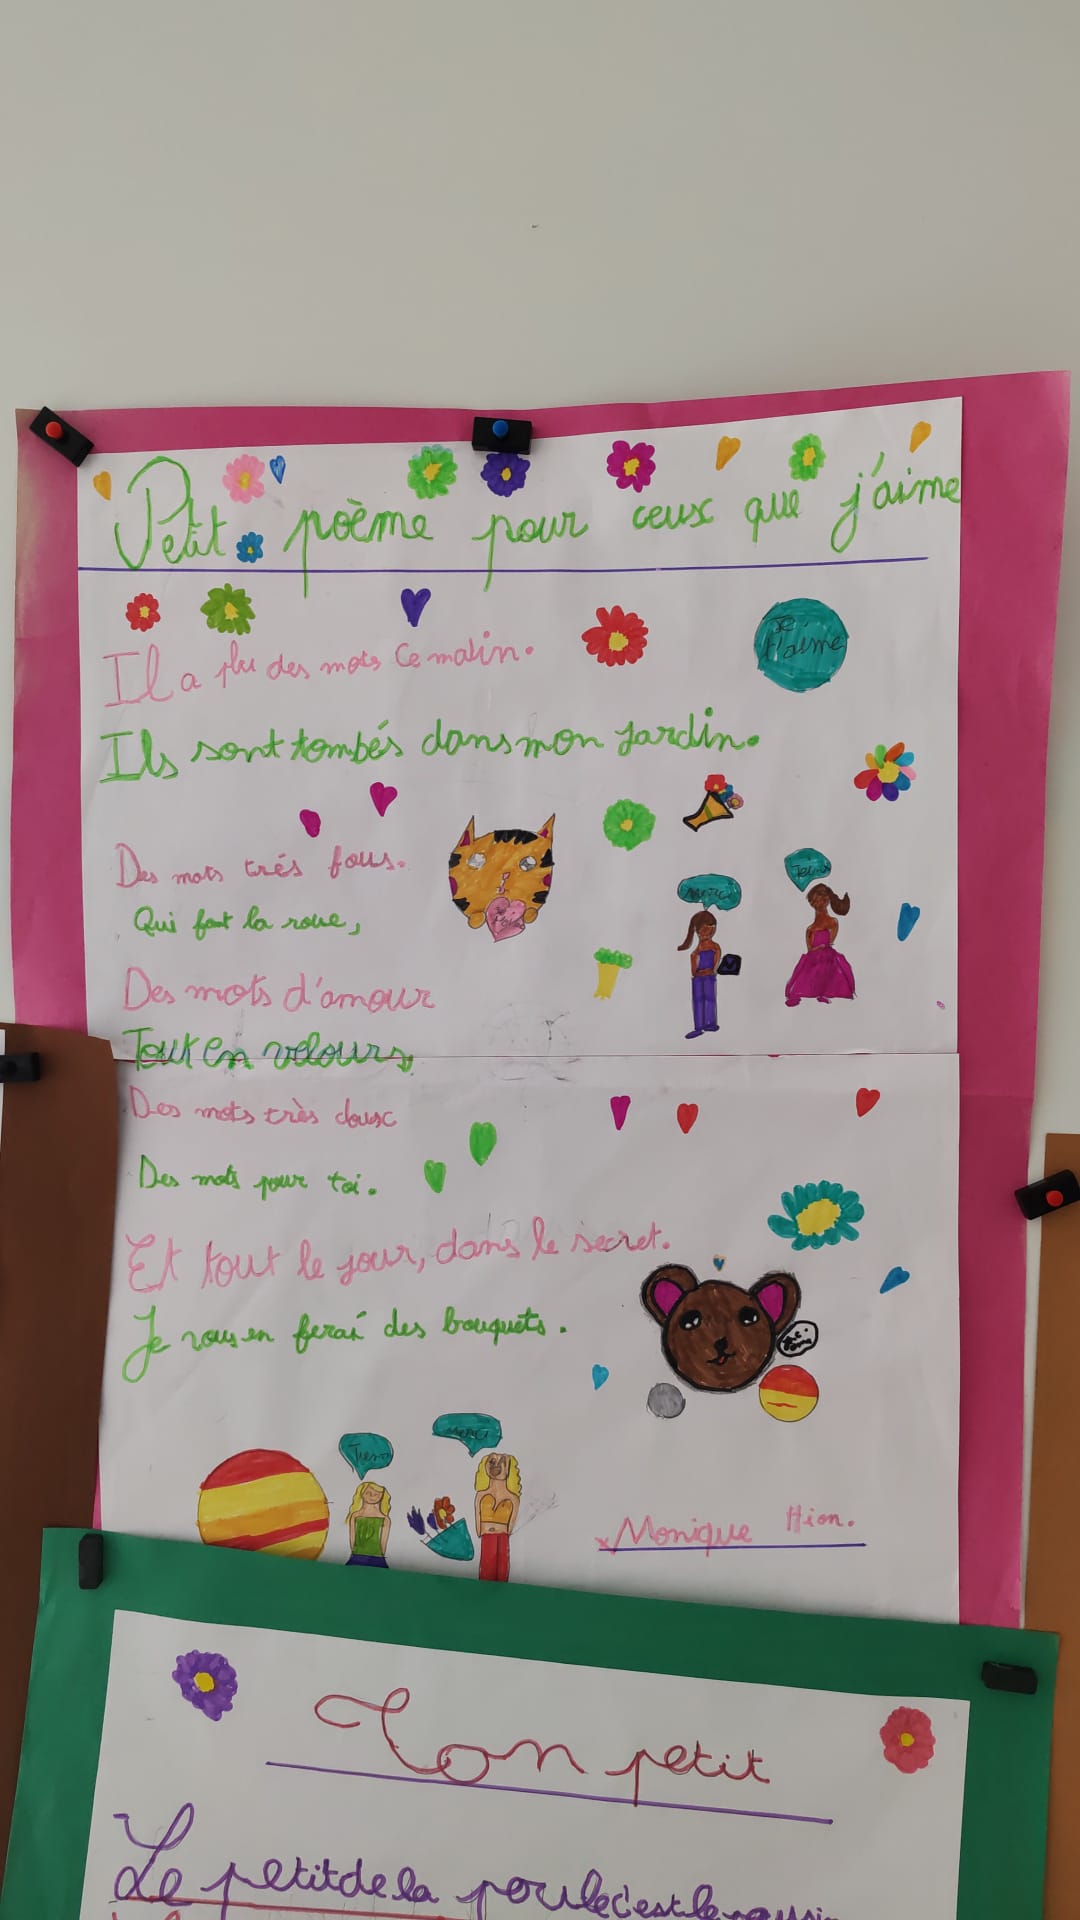 Petit poème pour ceux que j'aime
Il a plu des mots Ce matin.
Je t'aime
Ils sont tombés dans mon jardin.
Des mots trés fous.
Qui font la roue,
Merci
Des mots d'amour
Tout en velours,
Des mots très doux
Des mots pour toi.
Et tout le jour, dans le secret.
Je vous en ferai des bouquets.
Merci
Monique Hion.
Ton petit
Le petit de la poule c'est le